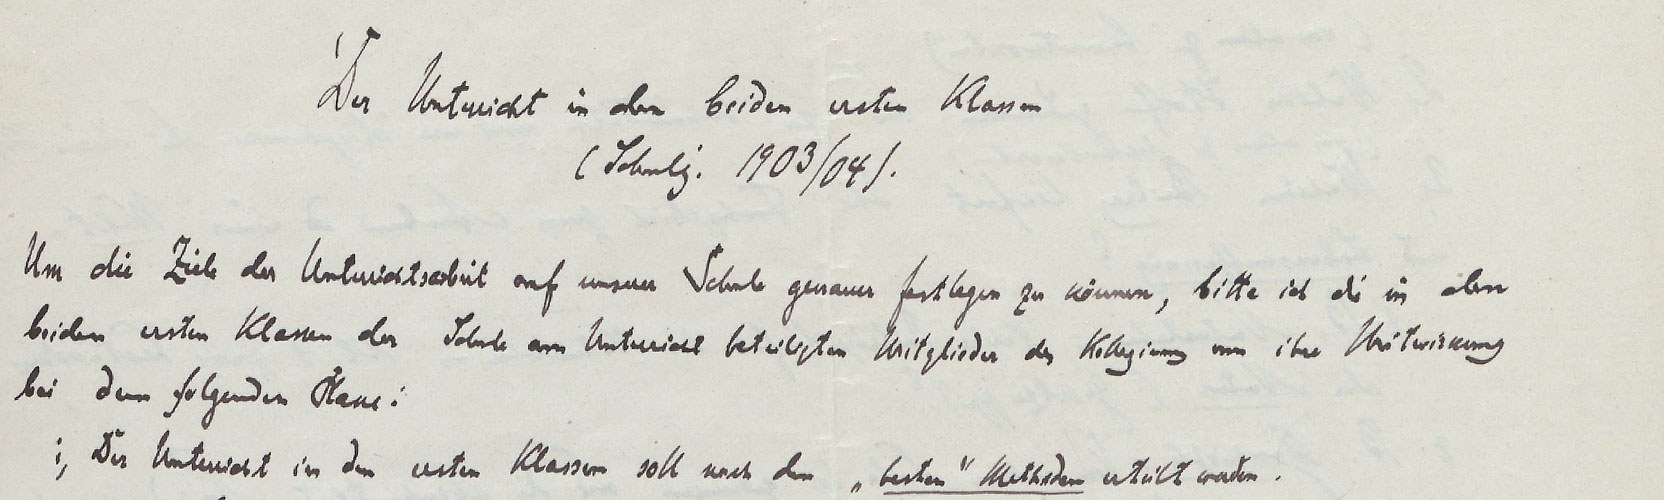 Der Unterricht in den beiden ersten Klassen
(Schulj. 1903/04).
Um die Ziele der Unterrichtsarbeit auf unserer Schule genauer festlegen zu können, bitte ich die in den
beiden ersten Klassen der Schule am Unterricht beteiligten Mitglieder des Kollegiums um ihre Mitwirkung
bei dem folgenden Plane:
1, Der Unterricht in den ersten Klassen soll nach den „besten" Methoden erteilt werden.